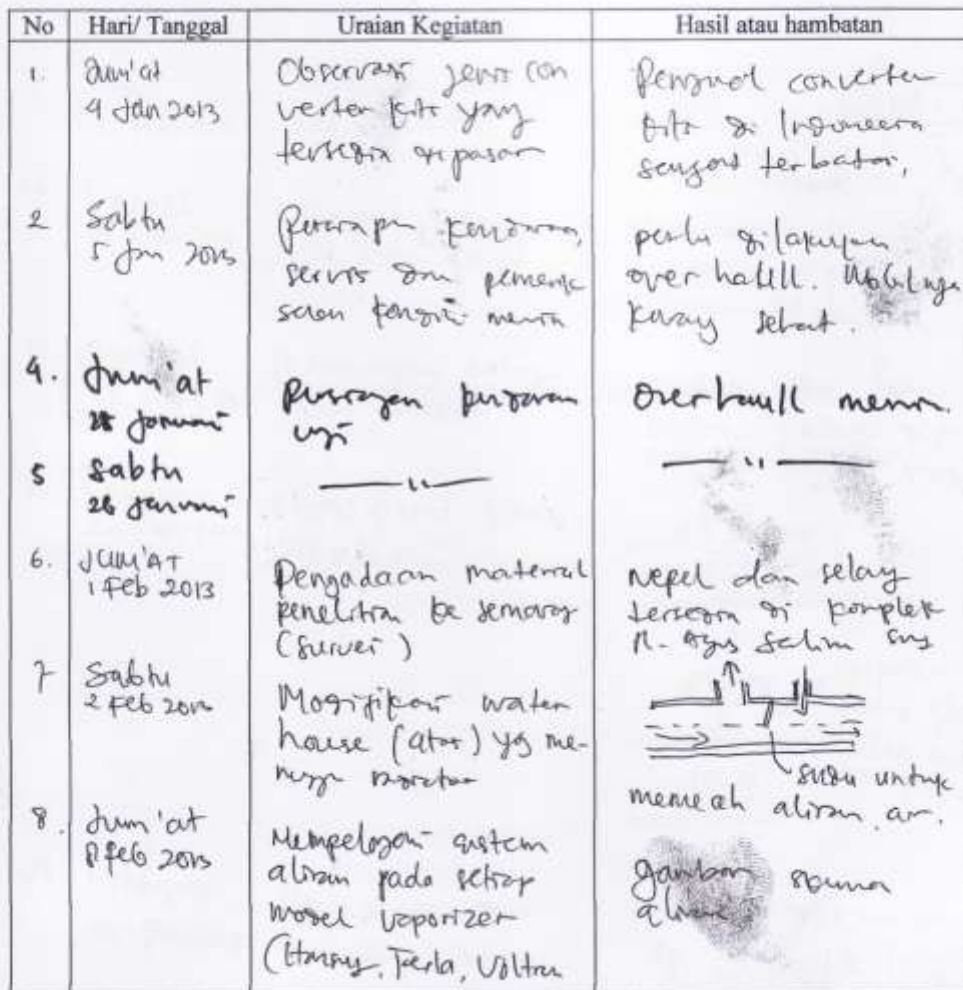 No Hari/ Tanggal Uraian Kegiatan Hasil atau hambatan
1. Jum'at
4 Jan 2013
Observasi jenis con
verter kits yang
tersedia dipasar
Penjual converter
kits di Indonesia
sangat terbatas,
2 Sabtu
5 Jan 2013
Persiapan kendaraan,
servis dan pemerik
saan kondisi mesin
perlu dilakukan
over hall.
kurang sehat.
4. Jum'at
Januari
Persiapan kendaraan
uji
Overhaull mesin.
5 Sabtu
26 Januari
—— " ——
—— " ——
6. JUM'AT
1 Feb 2013
Pengadaan material
penelitian ke semarang
(survei)
Nepel dan selang
tersedia di komplek
H. Agus Salim Smg
7 Sabtu
2 Feb 2013
Modifikasi water
house (atas) yg me-
nuju radiator
sudu untuk
memecah aliran air.
8. Jum'at
8 Feb 2013
Mempelajari sistem
aliran pada setiap
model vaporizer
(Tesla, Voltran
gambar skema
aliran